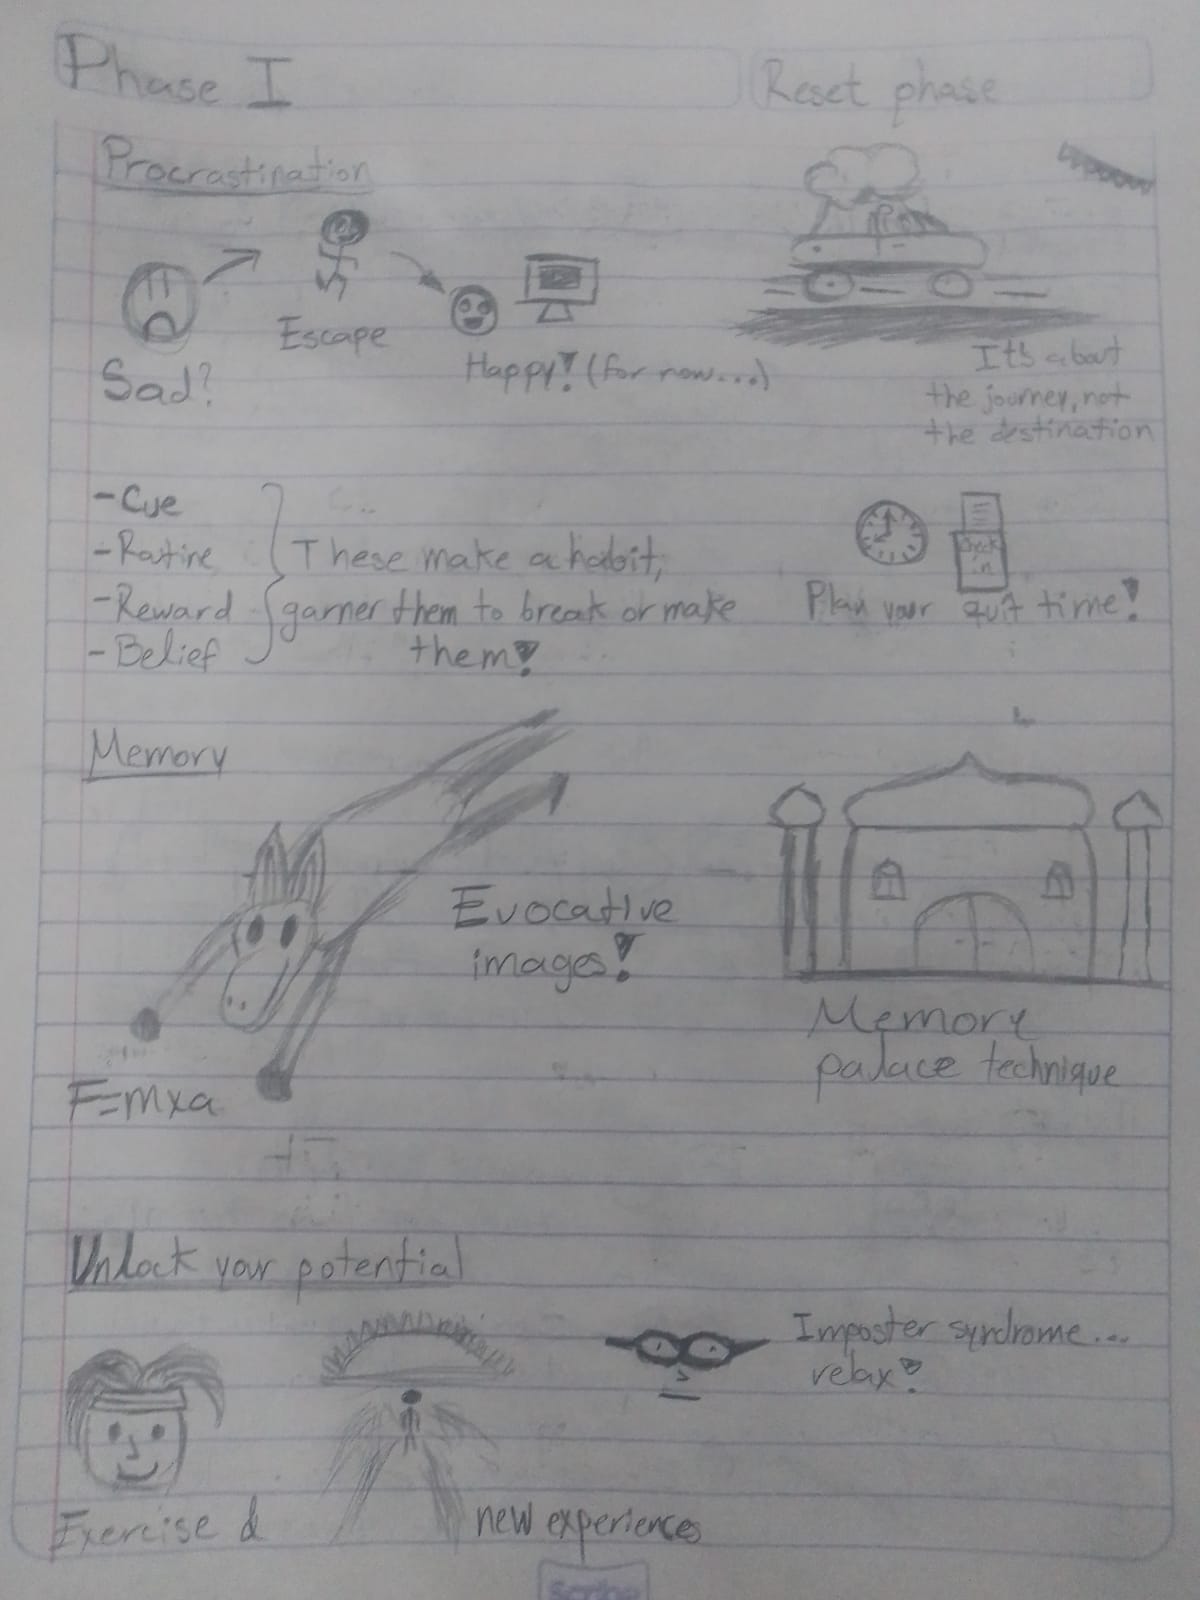 Phase I
Reset phase
Procrastination
Sad?
Escape
Happy! (for now...)
It's about
the journey, not
the destination
- Cue
- Routine
- Reward
- Belief
These make a habit,
garner them to break or make
them!
Check
in
Plan your quit time!
Memory
Evocative
images!
F=mxa
Memory
palace technique
Unlock your potential
Imposter syndrome...
relax!
Exercise &
new experiences
Scribe